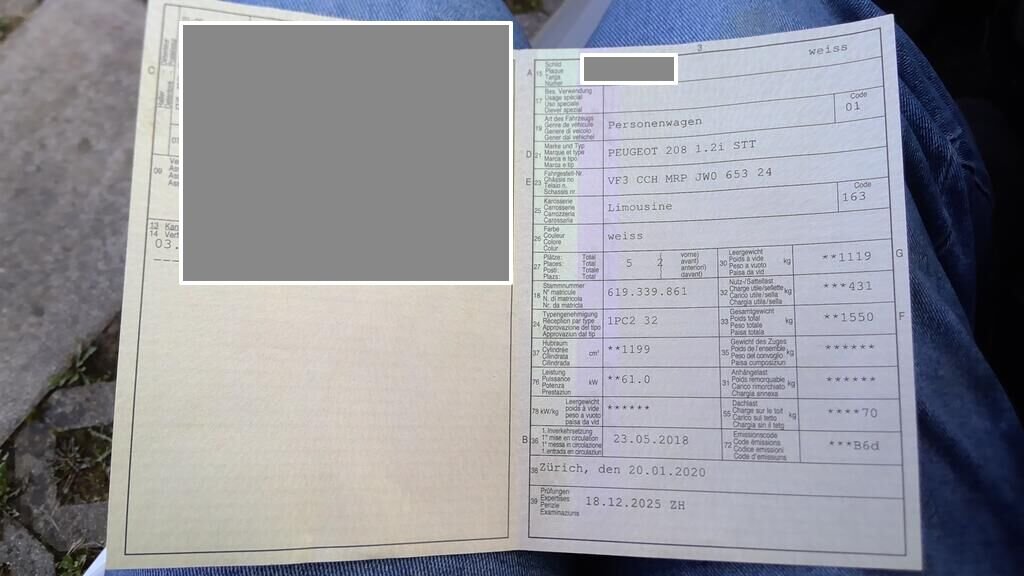 3
weiss
C
A 15 Schild
Plaque
Targa
Numer
17 Bes. Verwendung
Usage spécial
Uso speciale
Diever spezial
19 Art des Fahrzeugs
Genre de véhicule
Genere di veicolo
Gener dal vehichel
Personenwagen
Code
01
D 21 Marke und Typ
Marque et type
Marca e tipo
Marca e tip
PEUGEOT 208 1.2i STT
E 23 Fahrgestell-Nr.
Châssis no
Telaio n.
Schassis nr.
VF3 CCH MRP JW0 653 24
25 Karosserie
Carrosserie
Carrozzeria
Carossaria
Limousine
Code
163
26 Farbe
Couleur
Colore
Colur
weiss
27 Plätze: Total
Places: Total
Posti: Totale
Plazs: Total
5 2
vorne)
avant)
anteriori)
davant)
30 Leergewicht
Poids à vide
Peso a vuoto
Paisa da vid
kg
**1119
G
18 Stammnummer
N° matricule
N. di matricola
Nr. da matricla
619.339.861
32 Nutz-/Sattellast
Charge utile/sellette
Carico utile/sella
Chargia utila/sella
kg
***431
24 Typengenehmigung
Réception par type
Approvazione del tipo
Approvaziun dal tip
1PC2 32
33 Gesamtgewicht
Poids total
Peso totale
Paisa totala
kg
**1550
F
37 Hubraum
Cylindrée
Cilindrata
Cilindrada
cm³
**1199
35 Gewicht des Zuges
Poids de l'ensemble
Peso del convoglio
Paisa cumposiziun
kg
******
76 Leistung
Puissance
Potenza
Prestaziun
kW
**61.0
31 Anhängelast
Poids remorquable
Carico rimorchiato
Chargia annexa
kg
******
78 kW/kg
Leergewicht
poids à vide
peso a vuoto
paisa da vid
******
55 Dachlast
Charge sur le toit
Carico sul tetto
Chargia sin il tetg
kg
****70
B 36 1. Inverkehrsetzung
1re mise en circulation
1a messa in circolazione
1. entrada en circulaziun
23.05.2018
72 Emissionscode
Code émissions
Codice emissioni
Code d'emissiuns
***B6d
38 Zürich, den 20.01.2020
39 Prüfungen
Expertises
Perizie
Examinaziuns
18.12.2025 ZH
09
13
14
03.